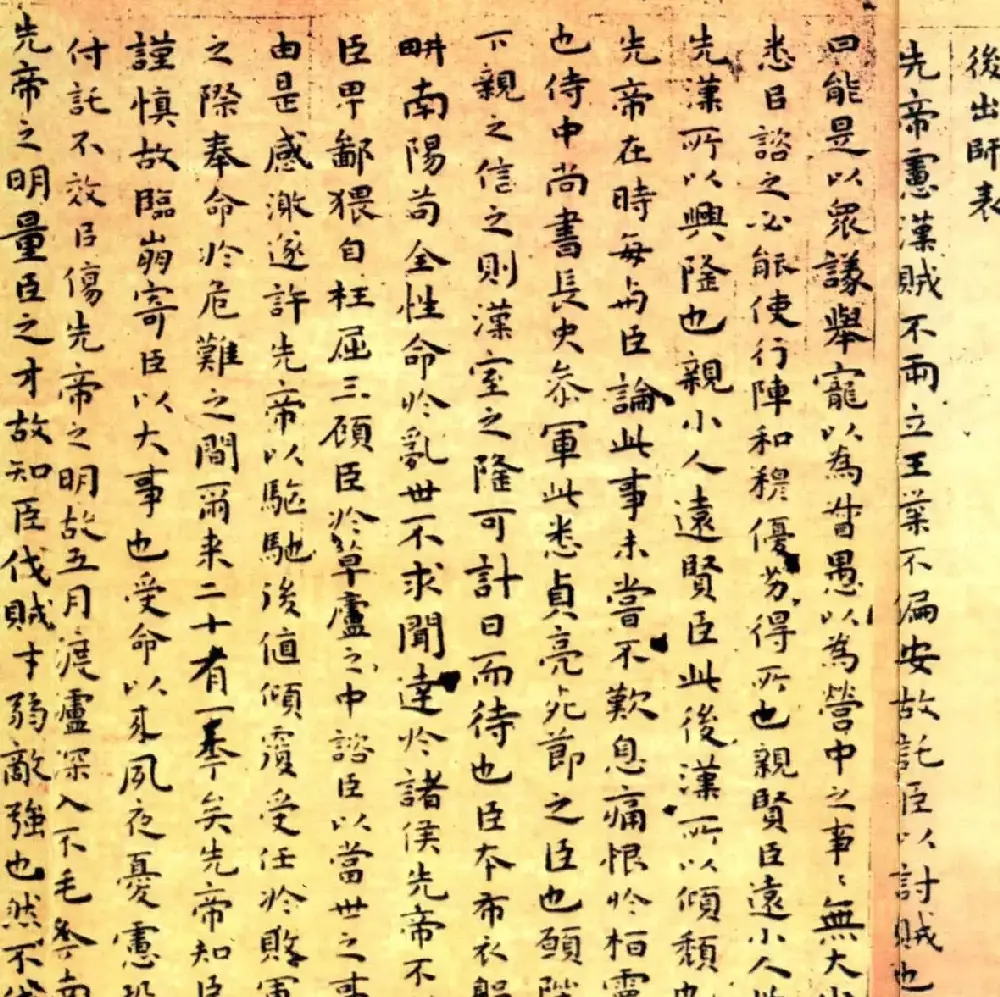 後出師表
先帝慮漢賊不兩立王業不偏安故託臣以討賊也
曰能是以眾議舉寵以為督愚以為營中之事〻無大小
悉㠯諮之必能使行陣和穆優劣得所也親賢臣遠小人此
先漢所以興隆也親小人遠賢臣此後漢所以傾頹也
先帝在時每与臣論此事未嘗不歎息痛恨於桓靈
也侍中尚書長史叅軍此悉貞亮死節之臣也願陛
下親之信之則漢室之隆可計日而待也臣本布衣躬
畊南陽苟全性命於亂世不求聞達於諸侯先帝不
臣卑鄙猥自枉屈三顧臣於草廬之中諮臣以當世之事
由是感激遂許先帝以駈馳後值傾覆受任於敗軍
之際奉命於危難之間爾来二十有一年矣先帝知臣
謹慎故臨崩寄臣以大事也受命以来夙夜憂慮恐
付託不效㠯傷先帝之明故五月渡瀘深入不毛南
先帝之明量臣之才故知臣伐賊才弱敵強也然不伐